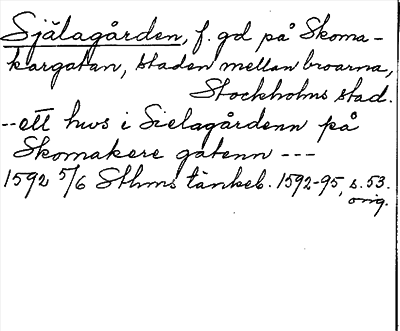 Själagården, f. gd på Skoma-
kargatan, staden mellan broarna,
Stockholms stad.
--ett hws i Sielagårdenn på
Skomakere gatenn ---
1592 5/6 Sthms tänkeb. 1592-95, s. 53.
orig.